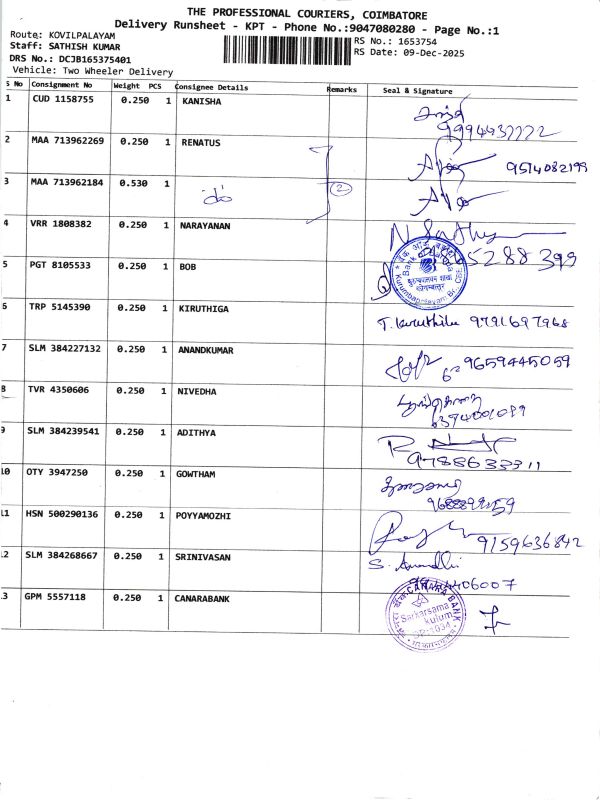 THE PROFESSIONAL COURIERS, COIMBATORE
Delivery Runsheet - KPT - Phone No.:9047080280 - Page No.:1
Route: KOVILPALAYAM
Staff: SATHISH KUMAR
DRS No.: DCJB165375401
Vehicle: Two Wheeler Delivery
RS No.: 1653754
RS Date: 09-Dec-2025
S No Consignment No Weight PCS Consignee Details Remarks Seal & Signature
1 CUD 1158755 0.250 1 KANISHA
2 MAA 713962269 0.250 1 RENATUS 9514082199
3 MAA 713962184 0.530 1 do 2
4 VRR 1808382 0.250 1 NARAYANAN
5 PGT 8105533 0.250 1 BOB
6 TRP 5145390 0.250 1 KIRUTHIGA T. Kiruthika 9791697968
7 SLM 384227132 0.250 1 ANANDKUMAR 9659445059
8 TVR 4350606 0.250 1 NIVEDHA
9 SLM 384239541 0.250 1 ADITHYA 9788633311
10 OTY 3947250 0.250 1 GOWTHAM
11 HSN 500290136 0.250 1 POYYAMOZHI 9159636842
12 SLM 384268667 0.250 1 SRINIVASAN
13 GPM 5557118 0.250 1 CANARABANK
CANARA BANK
Sarkarsama
kulum